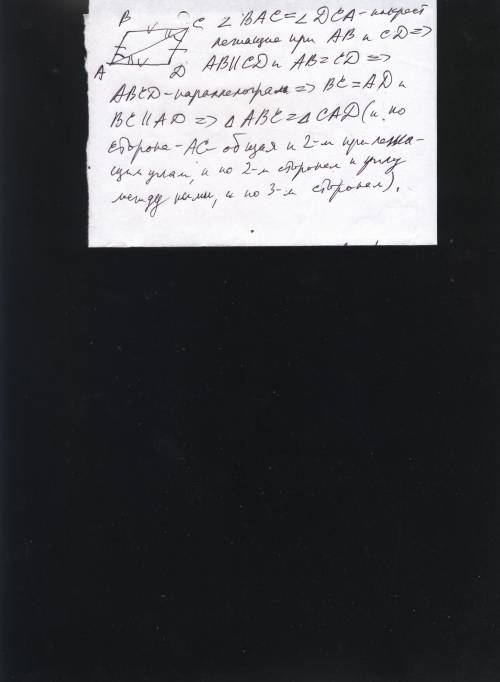 B C ∠BAC=∠DCA - накрест
лежащие при AB и CD =>
A D AB||CD и AB=CD =>
ABCD - параллелограм => BC=AD и
BC||AD => △ABC=△CAD (и по
стороне - AC - общая и 2-м прилежа-
щим углам, и по 2-м сторонам и углу
между ними, и по 3-м сторонам).